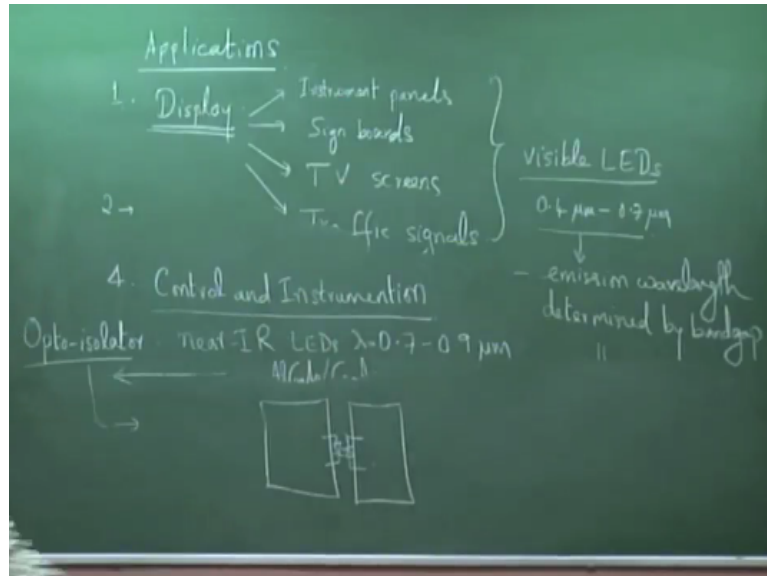 Applications
1. Display
Instrument panels
Sign boards
TV screens
Traffic signals
visible LEDs
0.4 μm - 0.7 μm
- emission wavelength
determined by bandgap
"
2 →
4. Control and Instrumention
Opto-isolator near-IR LEDs λ=0.7-0.9 μm